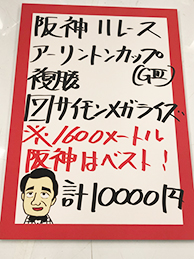 阪神11レース
アーリントンカップ
複勝 (GⅢ)
7 サイモンメガライズ
※1600メートル
阪神はベスト!
計10000円